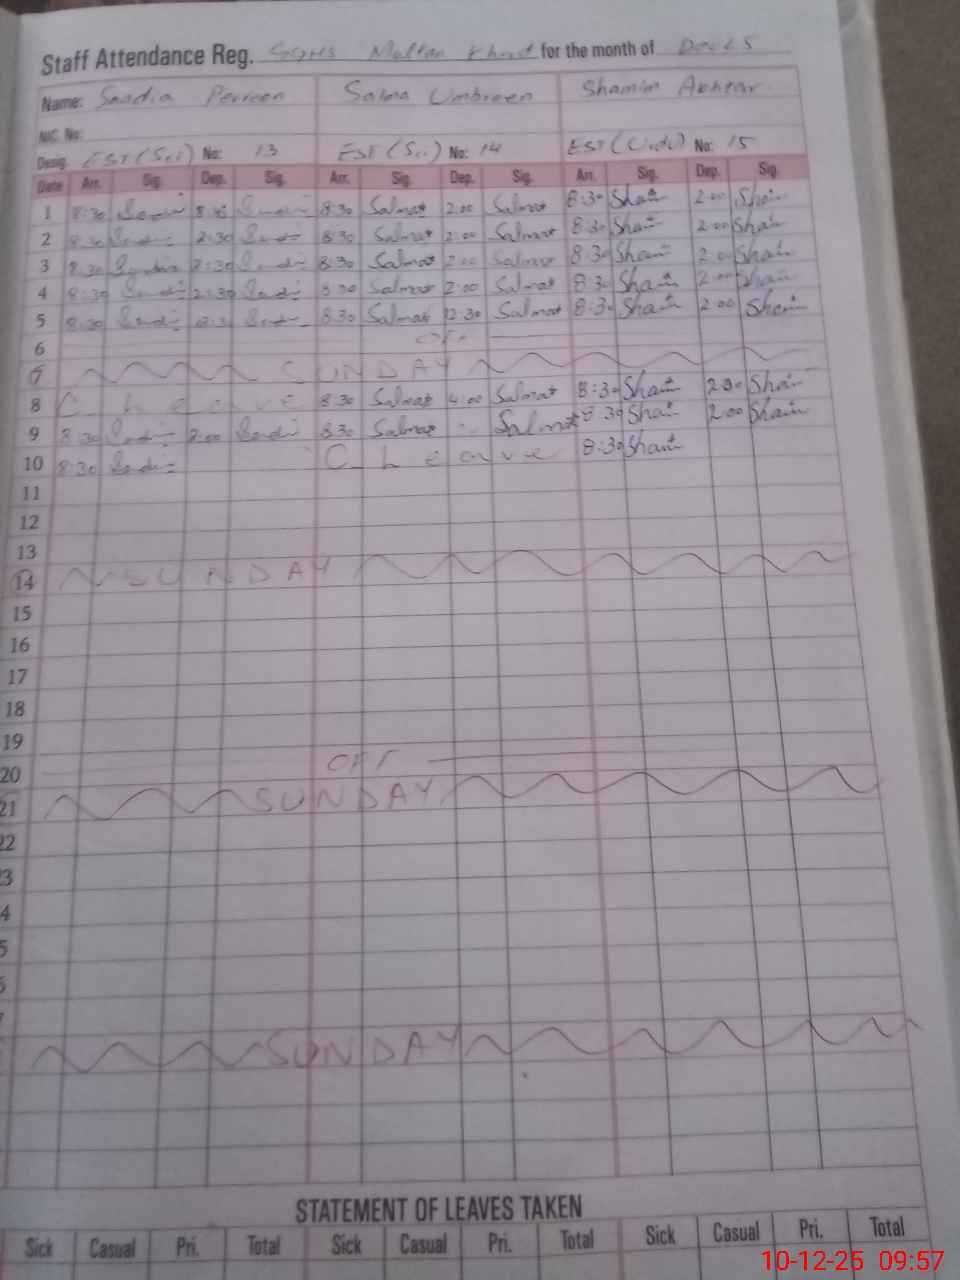 Staff Attendance Reg. GGHS Multan Khurd for the month of Dec 25
Name: Saadia Perveen Salma Umbreen Shamim Akhtar
NIC No:
Desig. EST (Sci) No: 13 EST (Sci) No: 14 EST (Urdu) No: 15
Date Arr. Sig. Dep. Sig. Arr. Sig. Dep. Sig. Arr. Sig. Dep. Sig.
1 8:30 8:30 Salmat 2:00 Salmat 8:30 2:00
2 8:30 2:30 8:30 Salmat 2:00 Salmat 8:30 2:00
3 8:30 2:30 8:30 Salmat 2:00 Salmat 8:30 2:00
4 8:30 2:30 8:30 Salmat 2:00 Salmat 8:30 2:00
5 8:30 8:30 Salmat 12:30 Salmat 8:30 2:00
6 OFF
7 SUNDAY
8 C Leave 8:30 Salmat 4:00 Salmat 8:30
9 8:30 2:00 8:30 Salmat Salmat 8:30 2:00
10 8:30 C Leave 8:30
11
12
13
14 SUNDAY
15
16
17
18
19
20 OFF
21 SUNDAY
22
3
4
5
SUNDAY
STATEMENT OF LEAVES TAKEN
Sick Casual Pri. Total Sick Casual Pri. Total Sick Casual Pri. Total
10-12-25 09:57